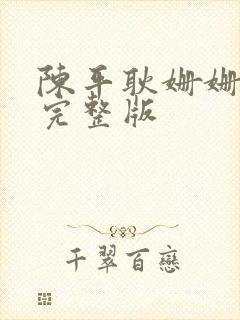 陳平耿姍姍
完整版
千翠百戀